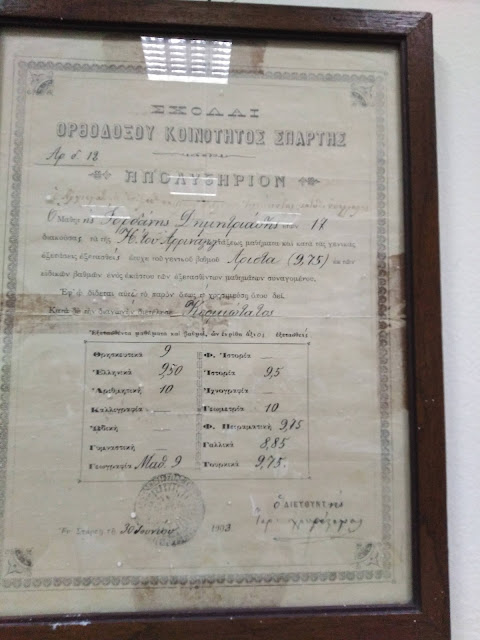 ΣΧΟΛΑΙ
ΟΡΘΟΔΟΞΟΥ ΚΟΙΝΟΤΗΤΟΣ ΣΠΑΡΤΗΣ
Αρ δ. 18
ΑΠΟΛΥΤΗΡΙΟΝ
Ὁ Μαθητὴς Ἰορδάνης Δημητριάδης 17
διακούσας τὰ τῆς Η. τοῦ Ἀρρεναγ. τάξεως μαθήματα καὶ κατὰ τὰς γενικὰς
ἐξετάσεις ἐξετασθεὶς ἔτυχε τοῦ γενικοῦ βαθμοῦ Ἄριστα (9,75) ἐκ τῶν
εἰδικῶν βαθμῶν ἑνὸς ἑκάστου τῶν ἐξετασθέντων μαθημάτων συναγομένου.
Ἐφ' ᾧ δίδεται αὐτῷ τὸ παρὸν ὅπως τῷ χρησιμεύσῃ ὅπου δεῖ.
Κατὰ δὲ τὴν διαγωγὴν Κοσμιώτατος
Ἐξετασθέντα μαθήματα καὶ βαθμοί, ὧν ἐκρίθη ἄξιος ὁ ἐξετασθείς
Θρησκευτικὰ 9 Φ. Ἱστορία —
Ἑλληνικὰ 9,50 Ἱστορία 9,5
Ἀριθμητικὴ 10 Ἰχνογραφία —
Καλλιγραφία — Γεωμετρία 10
Ὠδικὴ — Φ. Πειραματικὴ 9,75
Γυμναστικὴ — Γαλλικὰ 8,85
Γεωγραφία Μαθ. 9 Τουρκικὰ 9,75.
Ὁ ΔΙΕΥΘΥΝΤής
Ἐν Σπάρτῃ τῇ 30 Ἰουνίου 1903